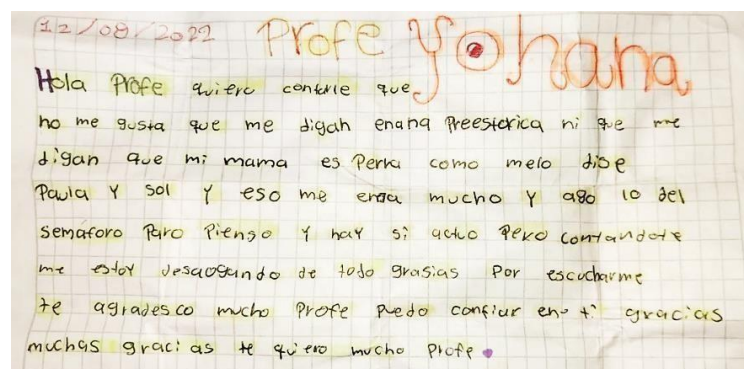 12/08/2022 Profe Yohana
Hola Profe quiero contarle que
no me gusta que me digan enana Preesterica ni que me
digan que mi mama es Perra como melo dise
Paula Y sol Y eso me enoja mucho Y ago lo del
semáforo Paro Pienso Y hay si actuo Pero contandote
me estoy desaogando de todo grasias Por escucharme
te agradesco mucho Profe Puedo confiar en ti gracias
muchas gracias te quiero mucho Profe